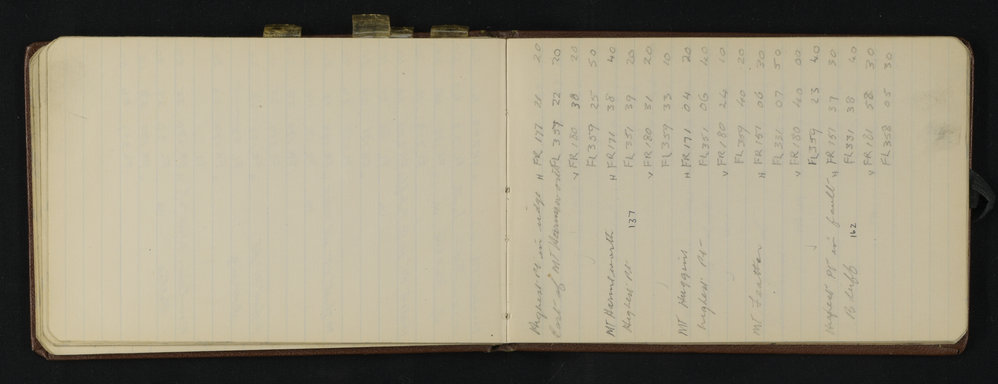 Highest Pt in ridge H FR 177 21 20
East of Mt Harmsworth FL 357 22 20
V FR 180 38 20
FL 359 25 50
Mt Harmsworth H FR 171 38 40
Highest Pt 137 FL 351 39 20
V FR 180 31 20
FL 359 33 10
Mt Huggins H FR 171 04 20
highest Pt FL 351 06 40
V FR 180 24 10
FL 359 40 20
Mt Feather H FR 151 06 30
FL 331 07 50
V FR 180 40 00
FL 359 23 40
Highest Pt in fault H FR 151 37 30
Bluff 162 FL 331 38 40
V FR 181 58 30
FL 358 05 30